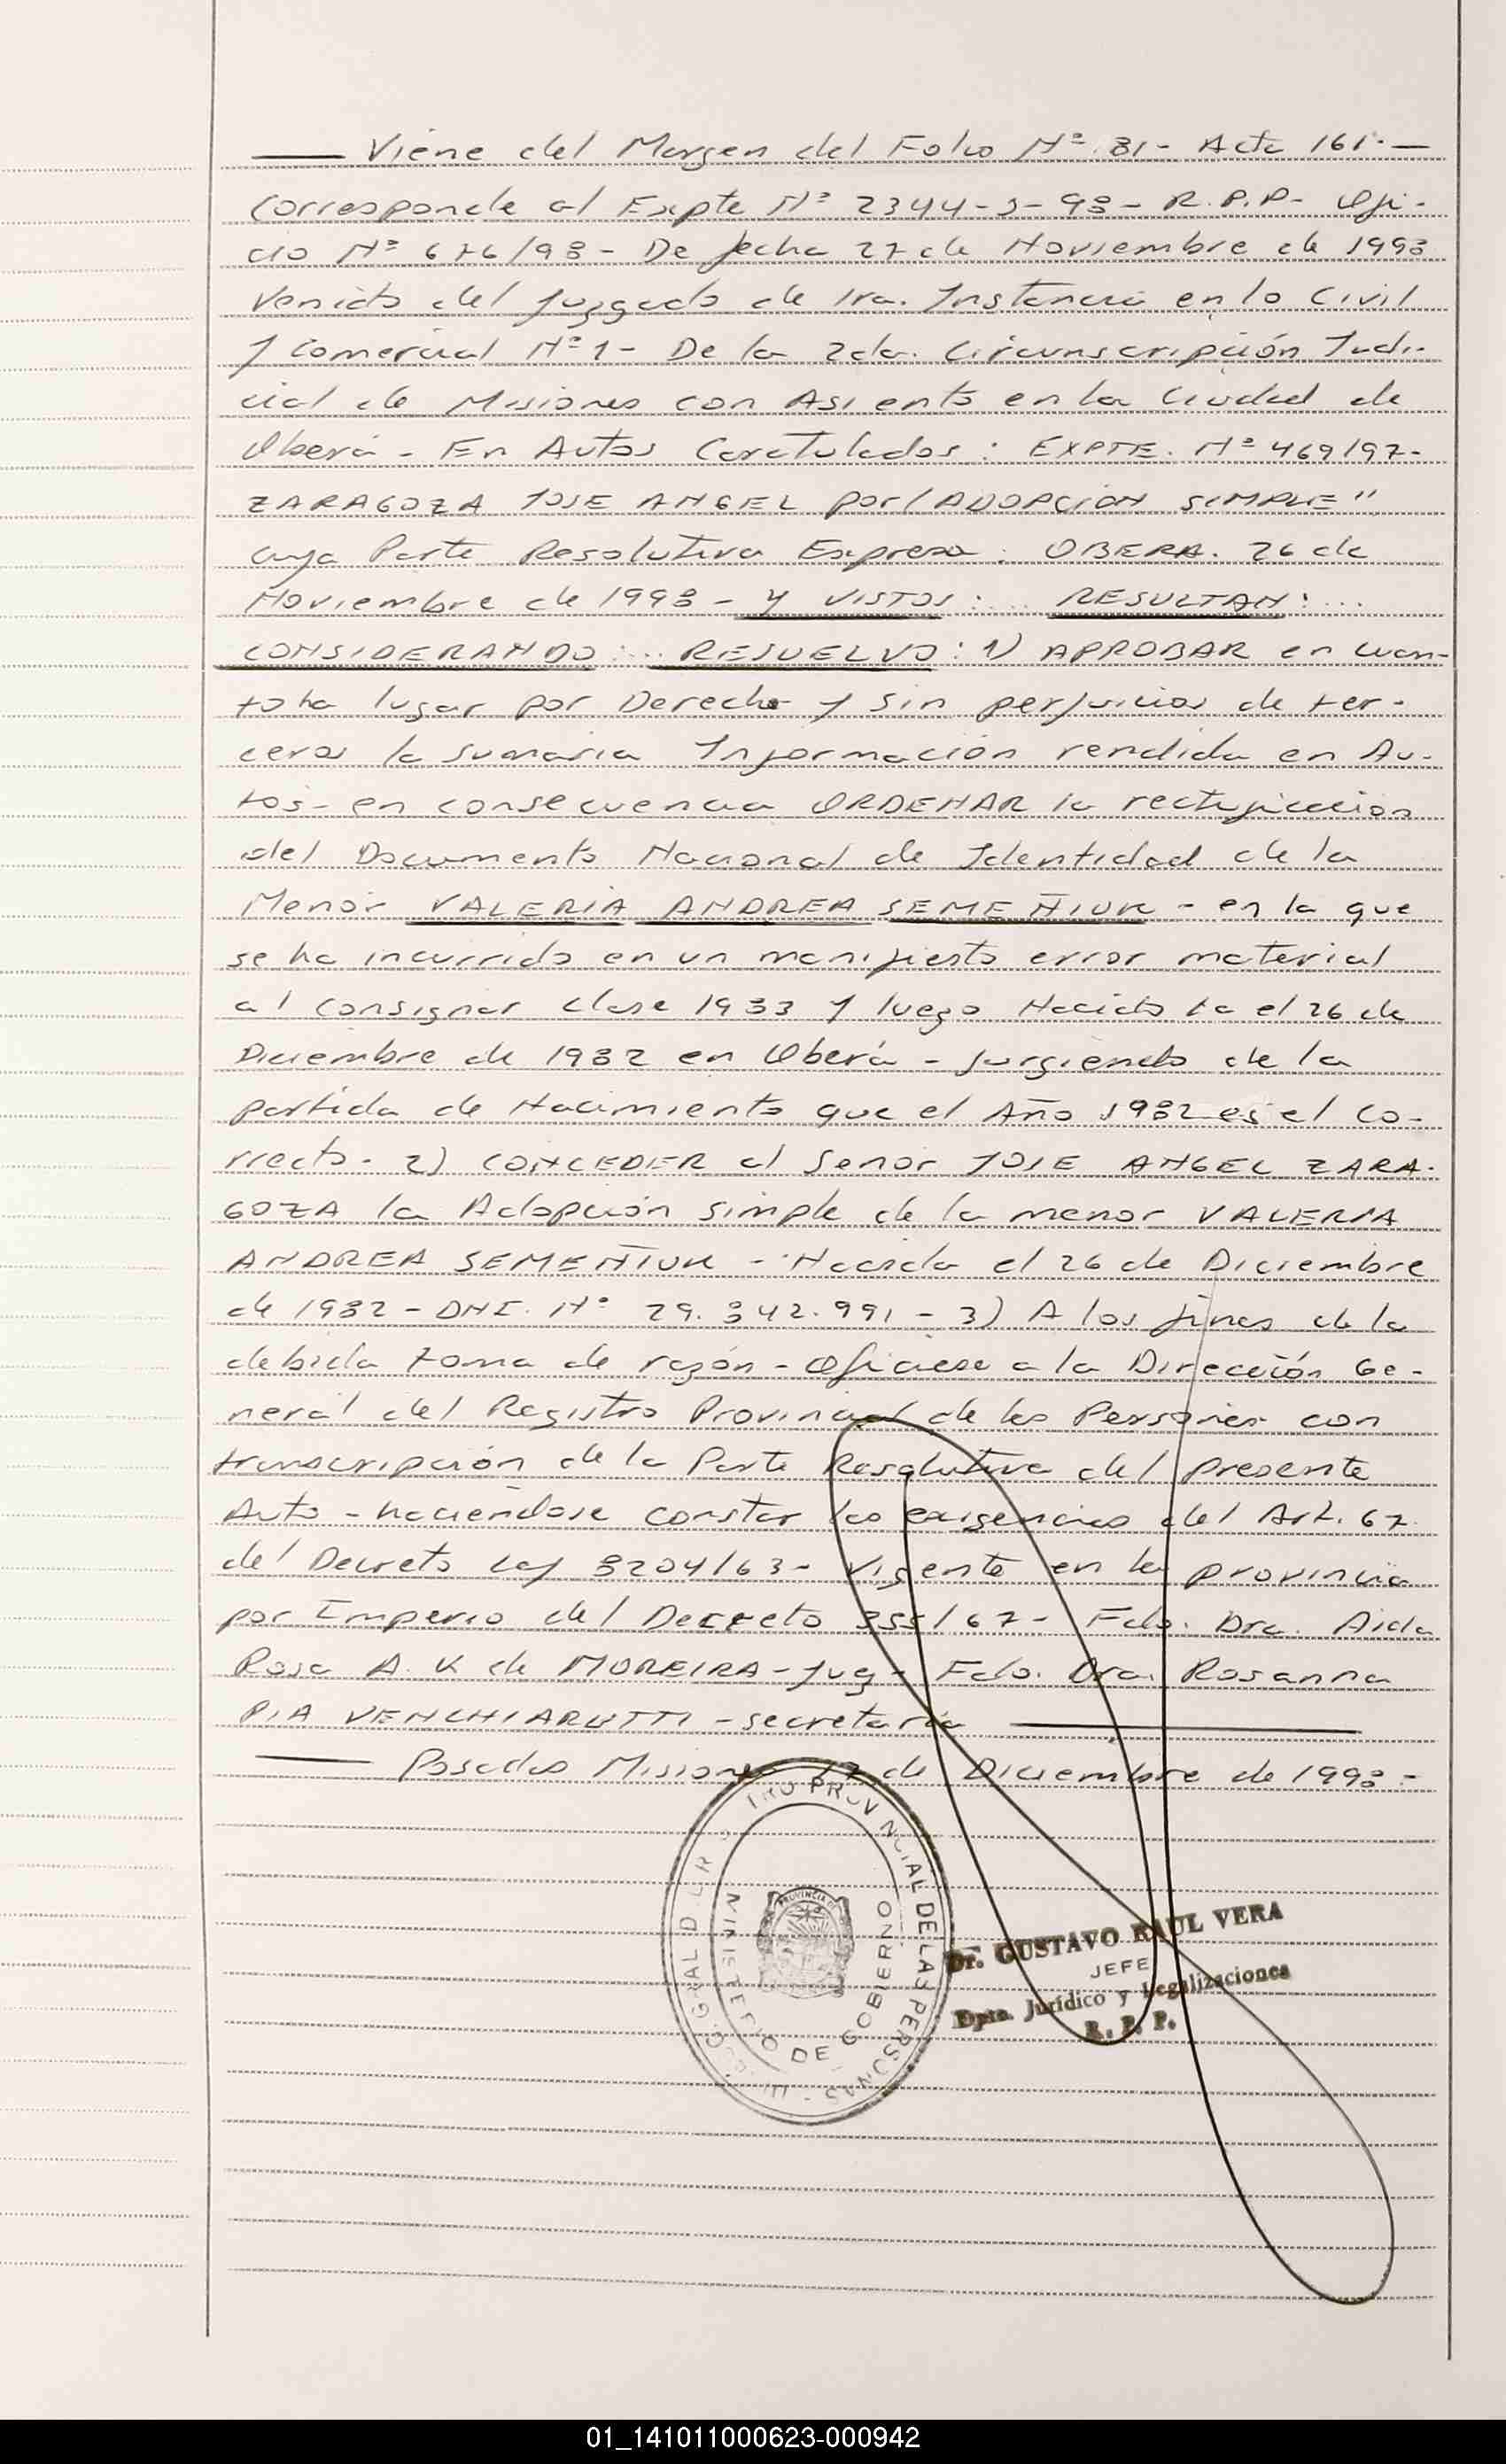 Viene del Margen del Folio Nº 81- Acta 161.-
Corresponde al Expte Nº 2344-S-98- R.P.P- Ofi-
cio Nº 676/98- De fecha 27 de Noviembre de 1998
Venido del Juzgado de 1ra. Instancia en lo Civil
y Comercial Nº 1- De la 2da. Circunscripción Judi-
cial de Misiones con Asiento en la Ciudad de
Oberá - En Autos Caratulados: EXPTE. Nº 469/97-
ZARAGOZA JOSE ANGEL por/ADOPCION SIMPLE"
cuya Parte Resolutiva Expresa: OBERA. 26 de
Noviembre de 1998 - Y VISTOS:... RESULTAN:...
CONSIDERANDO:... RESUELVO: 1) APROBAR en cuan-
to ha lugar por Derecho y sin perjuicios de ter-
ceros la sumaria Información rendida en Au-
tos- en consecuencia ORDENAR la rectificación
del Documento Nacional de Identidad de la
Menor VALERIA ANDREA SEMEÑIUK - en la que
se ha incurrido en un manifiesto error material
al consignar clase 1983 y luego Nacido ta el 26 de
Diciembre de 1982 en Oberá - surgiendo de la
partida de Nacimiento que el Año 1982 es el co-
rrecto- 2) CONCEDER al Señor JOSE ANGEL ZARA-
GOZA la Adopción simple de la menor VALERIA
ANDREA SEMEÑIUK - Nacida el 26 de Diciembre
de 1982 - DNI. Nº 29.842.991 - 3) A los fines de la
debida toma de razón - Ofíciese a la Dirección Ge-
neral del Registro Provincial de las Personas con
transcripción de la Parte Resolutiva del presente
Auto - haciéndose constar las exigencias del Art. 67
del Decreto Ley 8204/63- vigente en la provincia
por Imperio del Decreto 355/67- Fdo. Dra. Aida
Rosa A. K de MOREIRA - Juez - Fdo. Dra. Rosanna
PIA VENCHIARUTTI - secretaria
Posadas Misiones 17 de Diciembre de 1998 -
PROVINCIAL DE LAS PERSONAS
MINISTERIO DE GOBIERNO
PROVINCIA
Dr. GUSTAVO RAUL VERA
JEFE
Dpto. Jurídico y Legalizaciones
R. P. P.
01_141011000623-000942